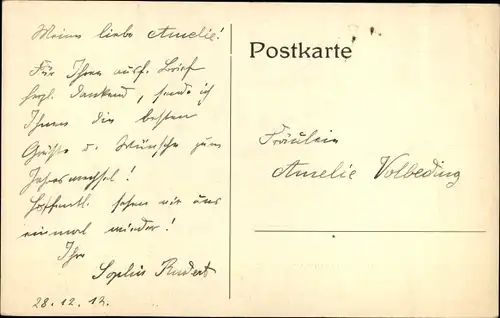 Meine liebe Amelie!
Für Ihren ausf. Brief
herzl. dankend, sende ich
Ihnen die besten
Grüße u. Wünsche zum
Jahreswechsel!
Hoffentl. sehen wir uns
einmal wieder!
Ihr
Sophie
28.12.12.
Postkarte
Fräulein
Amelie Volbeding